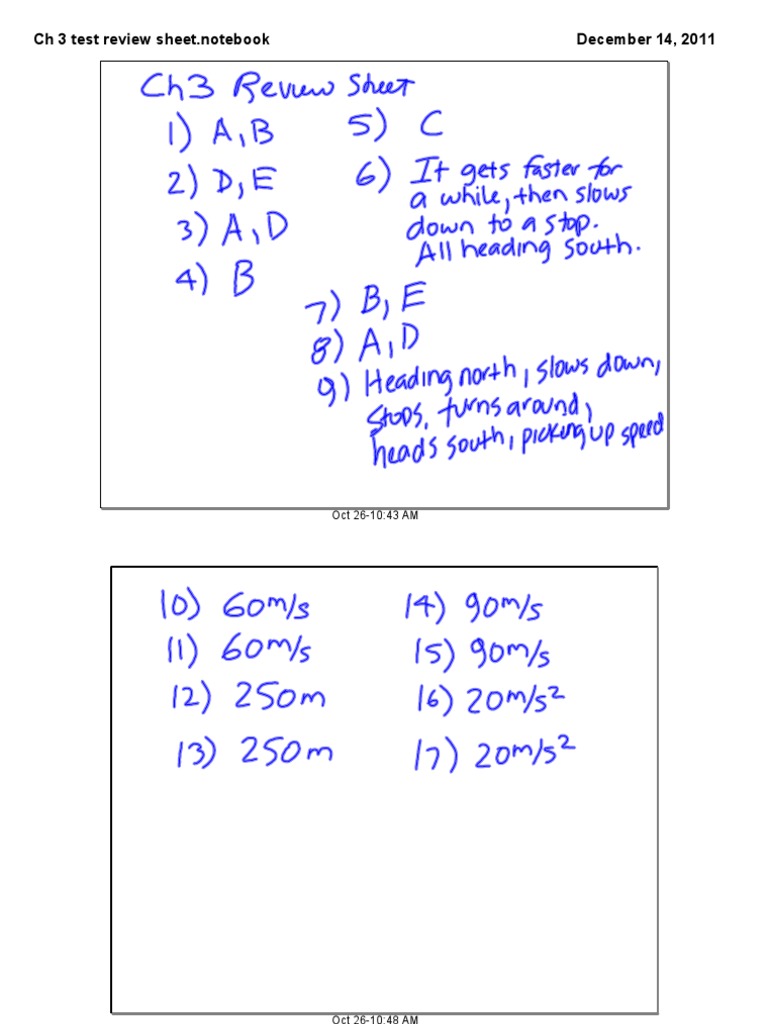 Ch 3 test review sheet.notebook
December 14, 2011
Ch3 Review Sheet
1) A, B
2) D, E
3) A, D
4) B
5) C
6) It gets faster for
a while, then slows
down to a stop.
All heading south.
7) B, E
8) A, D
9) Heading north, slows down,
stops, turns around,
heads south, picking up speed
Oct 26-10:43 AM
10) 60m/s
11) 60m/s
12) 250m
13) 250m
14) 90m/s
15) 90m/s
16) 20m/s²
17) 20m/s²
Oct 26-10:48 AM